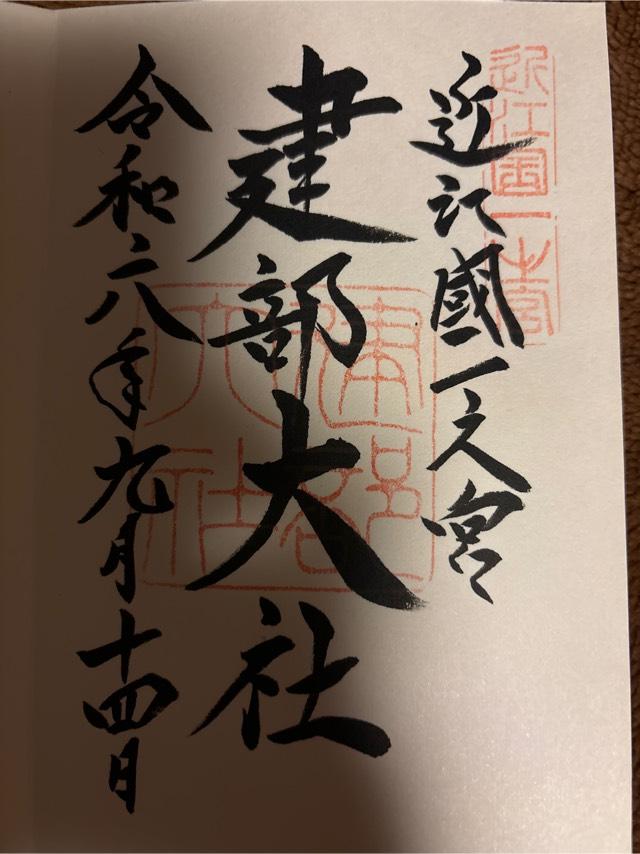 近江國一之宮
近江国一之宮
建部大社
建部大社
令和六年九月十四日